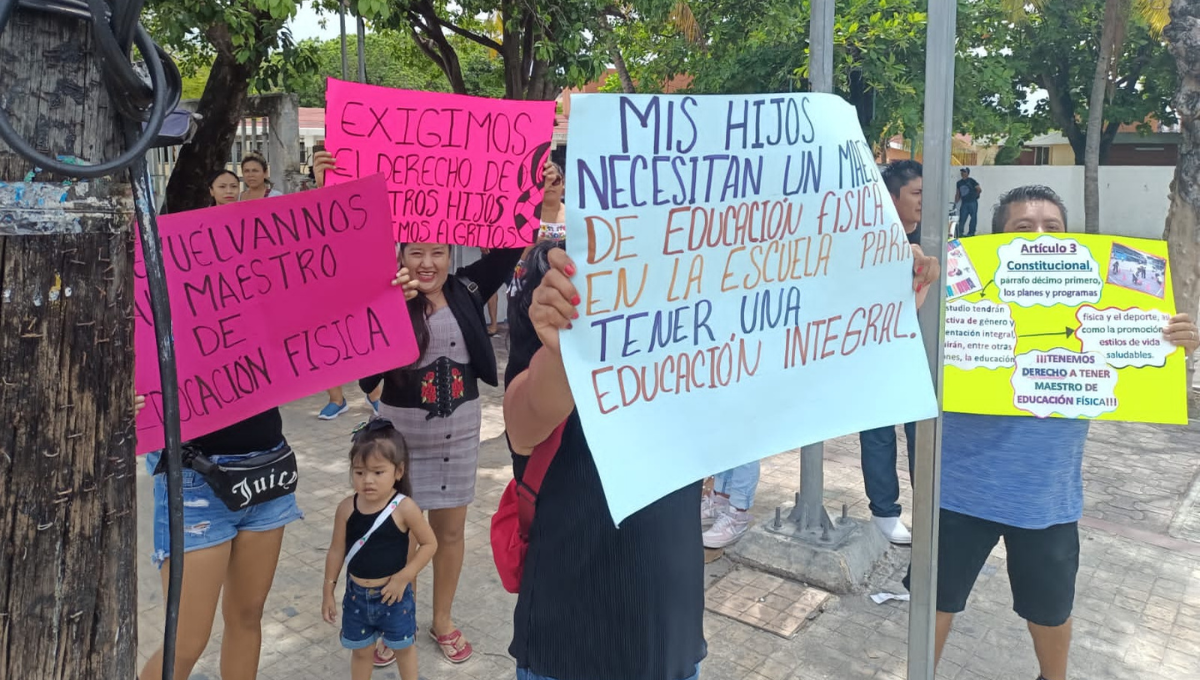 EXIGIMOS
EL DERECHO DE
HIJOS
DE
MAESTRO
DE
EDUCACIÓN FISICA
MIS HIJOS
NECESITAN UN
DE EDUCACIÓN FISICA
EN LA ESCUELA PARA
TENER UNA
EDUCACIÓN INTEGRAL.
Artículo 3
Constitucional,
párrafo décimo primero,
los planes y programas
estudio tendrán
de género y
integral,
entre otras
la educación
física y el deporte,
como la promoción
estilos de vida
saludables.
¡¡¡TENEMOS
DERECHO A TENER
MAESTRO DE
EDUCACIÓN FÍSICA!!!
Juicy